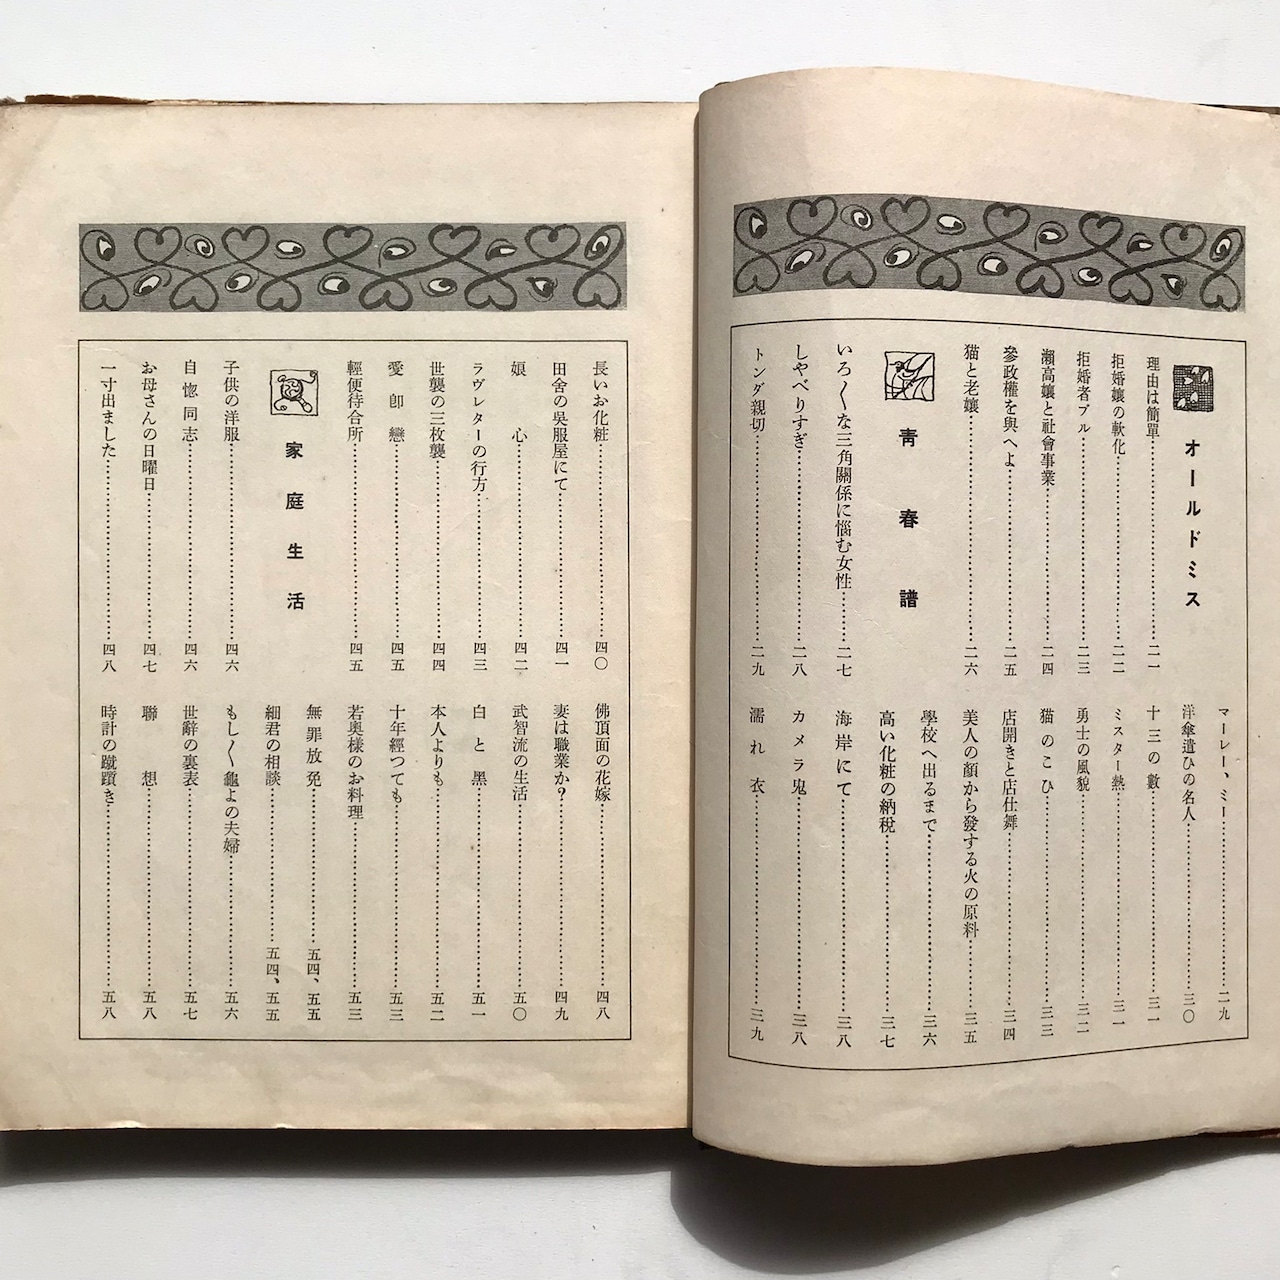 オールドミス
理由は簡單……二一
拒婚孃の軟化……二二
拒婚者ブル……二三
瀨高孃と社會事業……二四
參政權を與へよ……二五
猫と老孃……二六
靑春譜
いろ〳〵な三角關係に惱む女性……二七
しやべりすぎ……二八
トンダ親切……二九
マーレー、ミー……二九
洋傘遣ひの名人……三〇
十三の數……三一
ミスター熱……三一
勇士の風貌……三二
猫のこひ……三三
店開きと店仕舞……三四
美人の顏から發する火の原料……三五
學校へ出るまで……三六
高い化粧の納稅……三七
海岸にて……三八
カメラ鬼……三八
濡れ衣……三九
長いお化粧……四〇
田舍の吳服屋にて……四一
娘心……四二
ラヴレターの行方……四三
世襲の三枚襲……四四
愛卽戀……四五
輕便待合所……四五
家庭生活
子供の洋服……四六
自惚同志……四六
お母さんの日曜日……四七
一寸出ました……四八
佛頂面の花嫁……四八
妻は職業か?……四九
武智流の生活……五〇
白と黑……五一
本人よりも……五二
十年經つても……五三
若奧樣のお料理……五三
無罪放免……五四、五五
細君の相談……五四、五五
もし〳〵龜よの夫婦……五六
世辭の裏表……五七
聯想……五八
時計の蹴躓き……五八